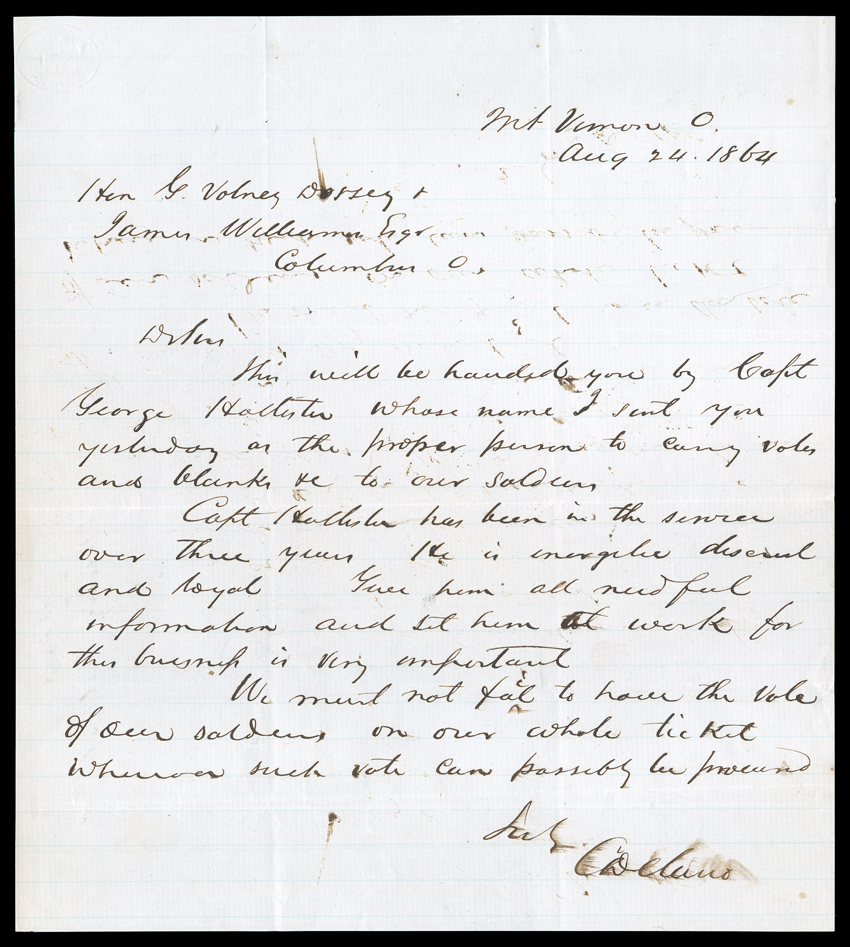 Mt Vernon O.
Aug 24. 1864
Hon G. Volney Dorsey &
James Williams Esqr
Columbus O
Dr Sirs
This will be handed you by Capt
George Hollister whose name I sent you
yesterday as the proper person to carry votes
and blanks &c to our soldiers
Capt Hollister has been in the service
over three years He is energetic discreet
and loyal Give him all needful
information and set him at work for
this business is very important
We must not fail to have the vote
of our soldiers on our whole ticket
whenever such vote can possibly be procured
C Delano